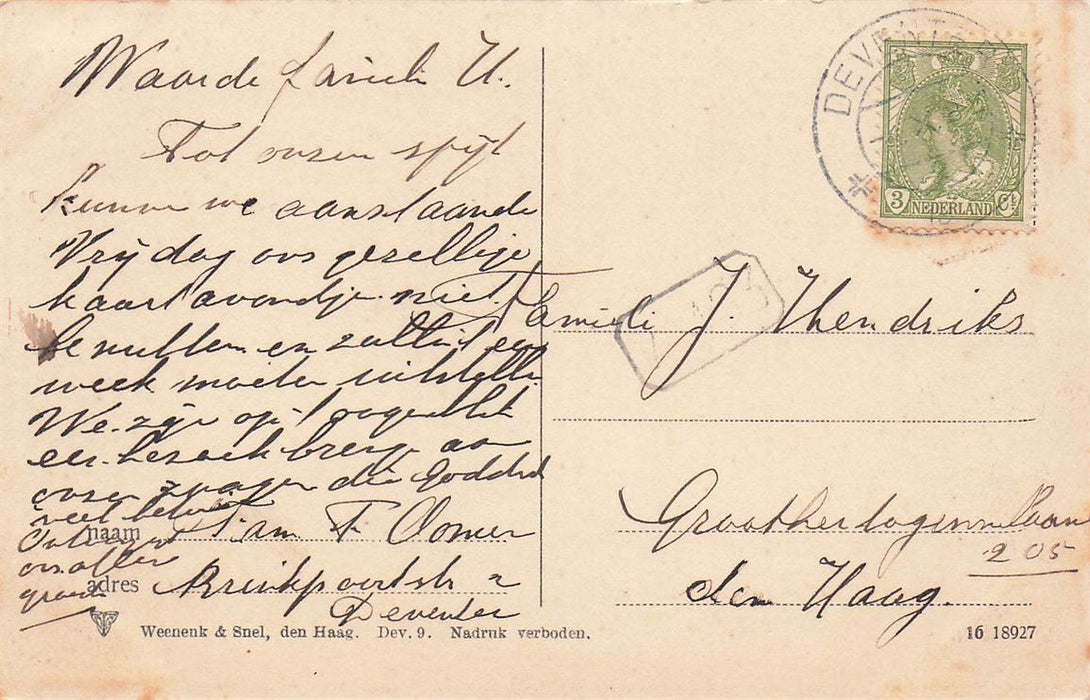 Waarde familie H.
Tot onzen spijt
kunnen we aanstaande
Vrijdag ons gezellige
kaartavondje niet
benutten en zullen het een
week moeten uitstellen.
We zijn op 't oogenblik
een bezoek breng aan
onzen zwager die Goddank
veel beter is
Ontvang
ons aller
groeten
naam Fam F. Oomen
adres Brinkpoortstr 2
Deventer
Weenenk & Snel, den Haag. Dev. 9. Nadruk verboden.
DEVENTER
3 NEDERLAND Ct
Familie J. Hendriks
Groothertoginnelaan
205
den Haag.
16 18927